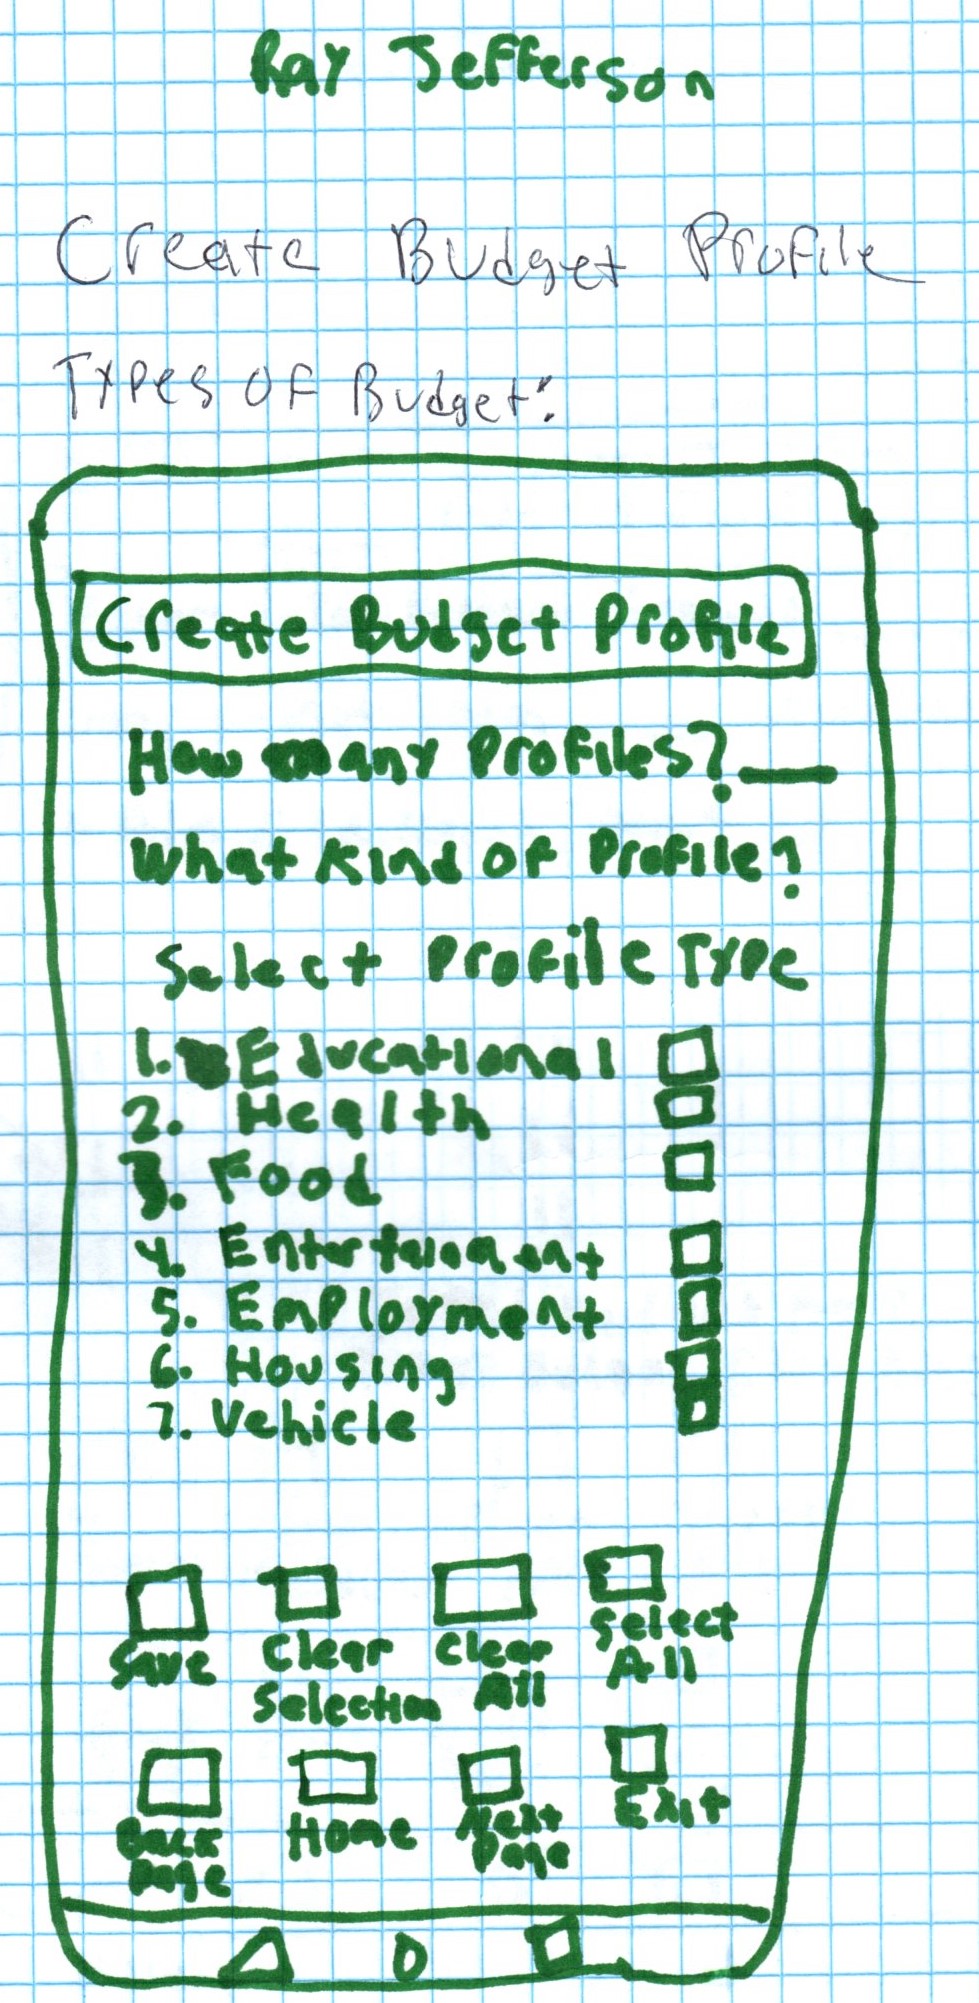 Ray Jefferson
Create Budget Profile
Types of Budget:
Create Budget Profile
How many Profiles? ___
What Kind of Profile?
Select Profile Type
1. Educational
2. Health
3. Food
4. Entertainment
5. Employment
6. Housing
7. Vehicle
Save
Clear
Selection
Clear
All
Select
All
Back
Page
Home
Next
Page
Exit